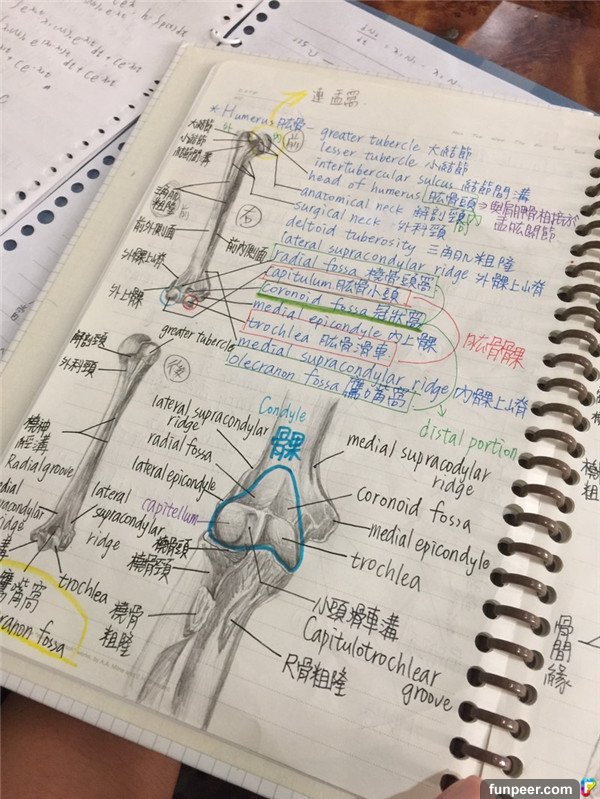 連 盂窩
* Humerus 肱骨 - greater tubercle 大結節
lesser tubercle 小結節
intertubercular sulcus 結節間溝
head of humerus 肱骨頭
anatomical neck 解剖頸
surgical neck 外科頸
deltoid tuberosity 三角肌粗隆
lateral supracondylar ridge 外髁上脊
radial fossa 橈骨頭窩
capitulum 肱骨小頭
coronoid fossa 冠狀窩
medial epicondyle 內上髁
trochlea 肱骨滑車
medial supracondylar ridge 內髁上脊
olecranon fossa 鷹嘴窩
肱骨髁
distal portion
大結節
小結節
前
三角肌
粗隆
右
前外側面
前內側面
外髁上脊
外上髁
greater tubercle
解剖頸
外科頸
後
橈神
經溝
Radial groove
lateral
supracondylar
ridge
trochlea
鷹嘴窩
lateral supracondylar
ridge
radial fossa
lateral epicondyle
capitellum
橈骨頭
橈骨頸
橈骨
粗隆
Condyle
髁
medial supracodylar
ridge
coronoid fossa
medial epicondyle
trochlea
小頭滑車溝
Capitulotrochlear
groove
尺骨粗隆
骨間緣
funpeer.com